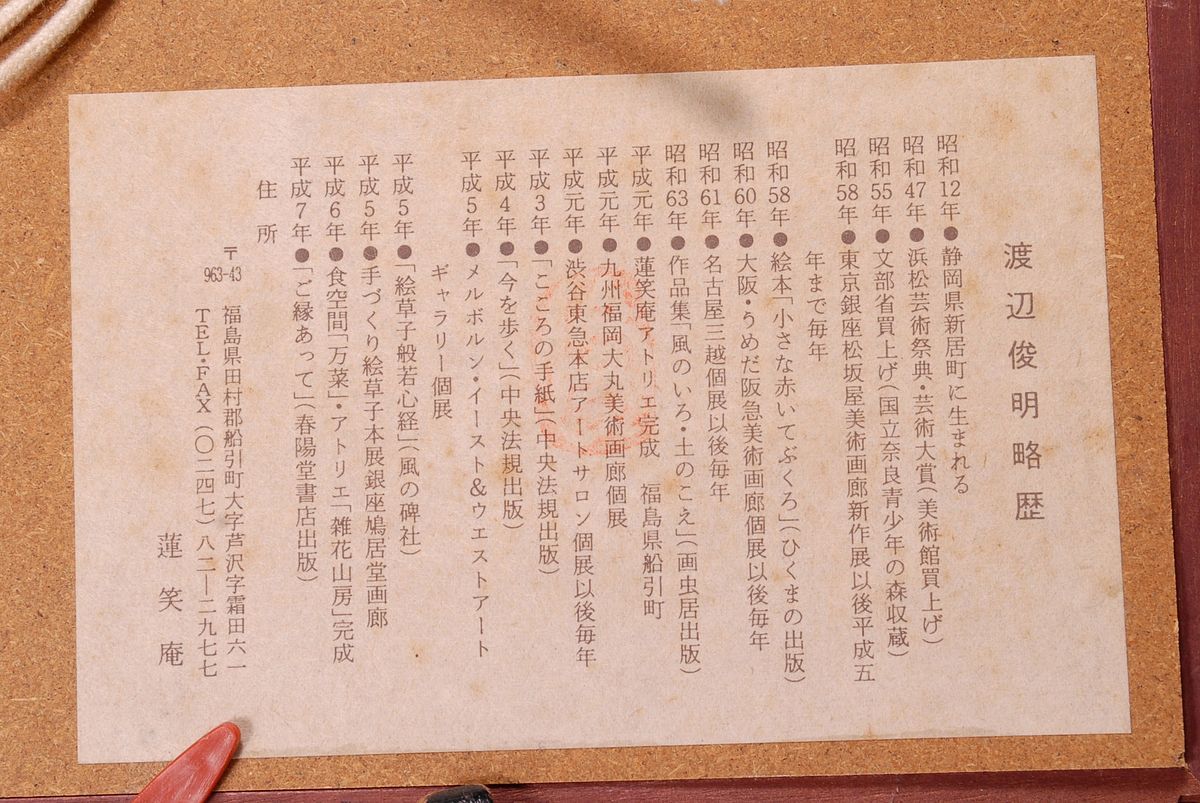 渡辺俊明略歴
昭和12年●静岡県新居町に生まれる
昭和47年●浜松芸術祭典・芸術大賞(美術館買上げ)
昭和55年●文部省買上げ(国立奈良青少年の森収蔵)
昭和58年●東京銀座松坂屋美術画廊新作展以後平成五
年まで毎年
昭和58年●絵本「小さな赤いてぶくろ」(ひくまの出版)
昭和60年●大阪・うめだ阪急美術画廊個展以後毎年
昭和61年●名古屋三越個展以後毎年
昭和63年●作品集「風のいろ・土のこえ」(画虫居出版)
平成元年●蓮笑庵アトリエ完成　福島県船引町
平成元年●九州福岡大丸美術画廊個展
平成元年●渋谷東急本店アートサロン個展以後毎年
平成3年●「こころの手紙」(中央法規出版)
平成4年●「今を歩く」(中央法規出版)
平成5年●メルボルン・イースト&ウエストアート
ギャラリー個展
平成5年●「絵草子般若心経」(風の碑社)
平成5年●手づくり絵草子本展銀座鳩居堂画廊
平成6年●食空間「万菜」・アトリエ「雑花山房」完成
平成7年●「ご縁あって」(春陽堂書店出版)
住所
〒963-43　福島県田村郡船引町大字芦沢字霜田六一
TEL・FAX(〇二四七)八二―二九七七
蓮笑庵